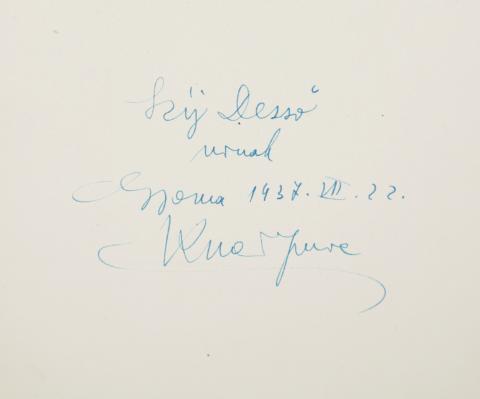 Szíj Dezső
urnak
Gyoma 1937. VII. 22.
Kner Imre